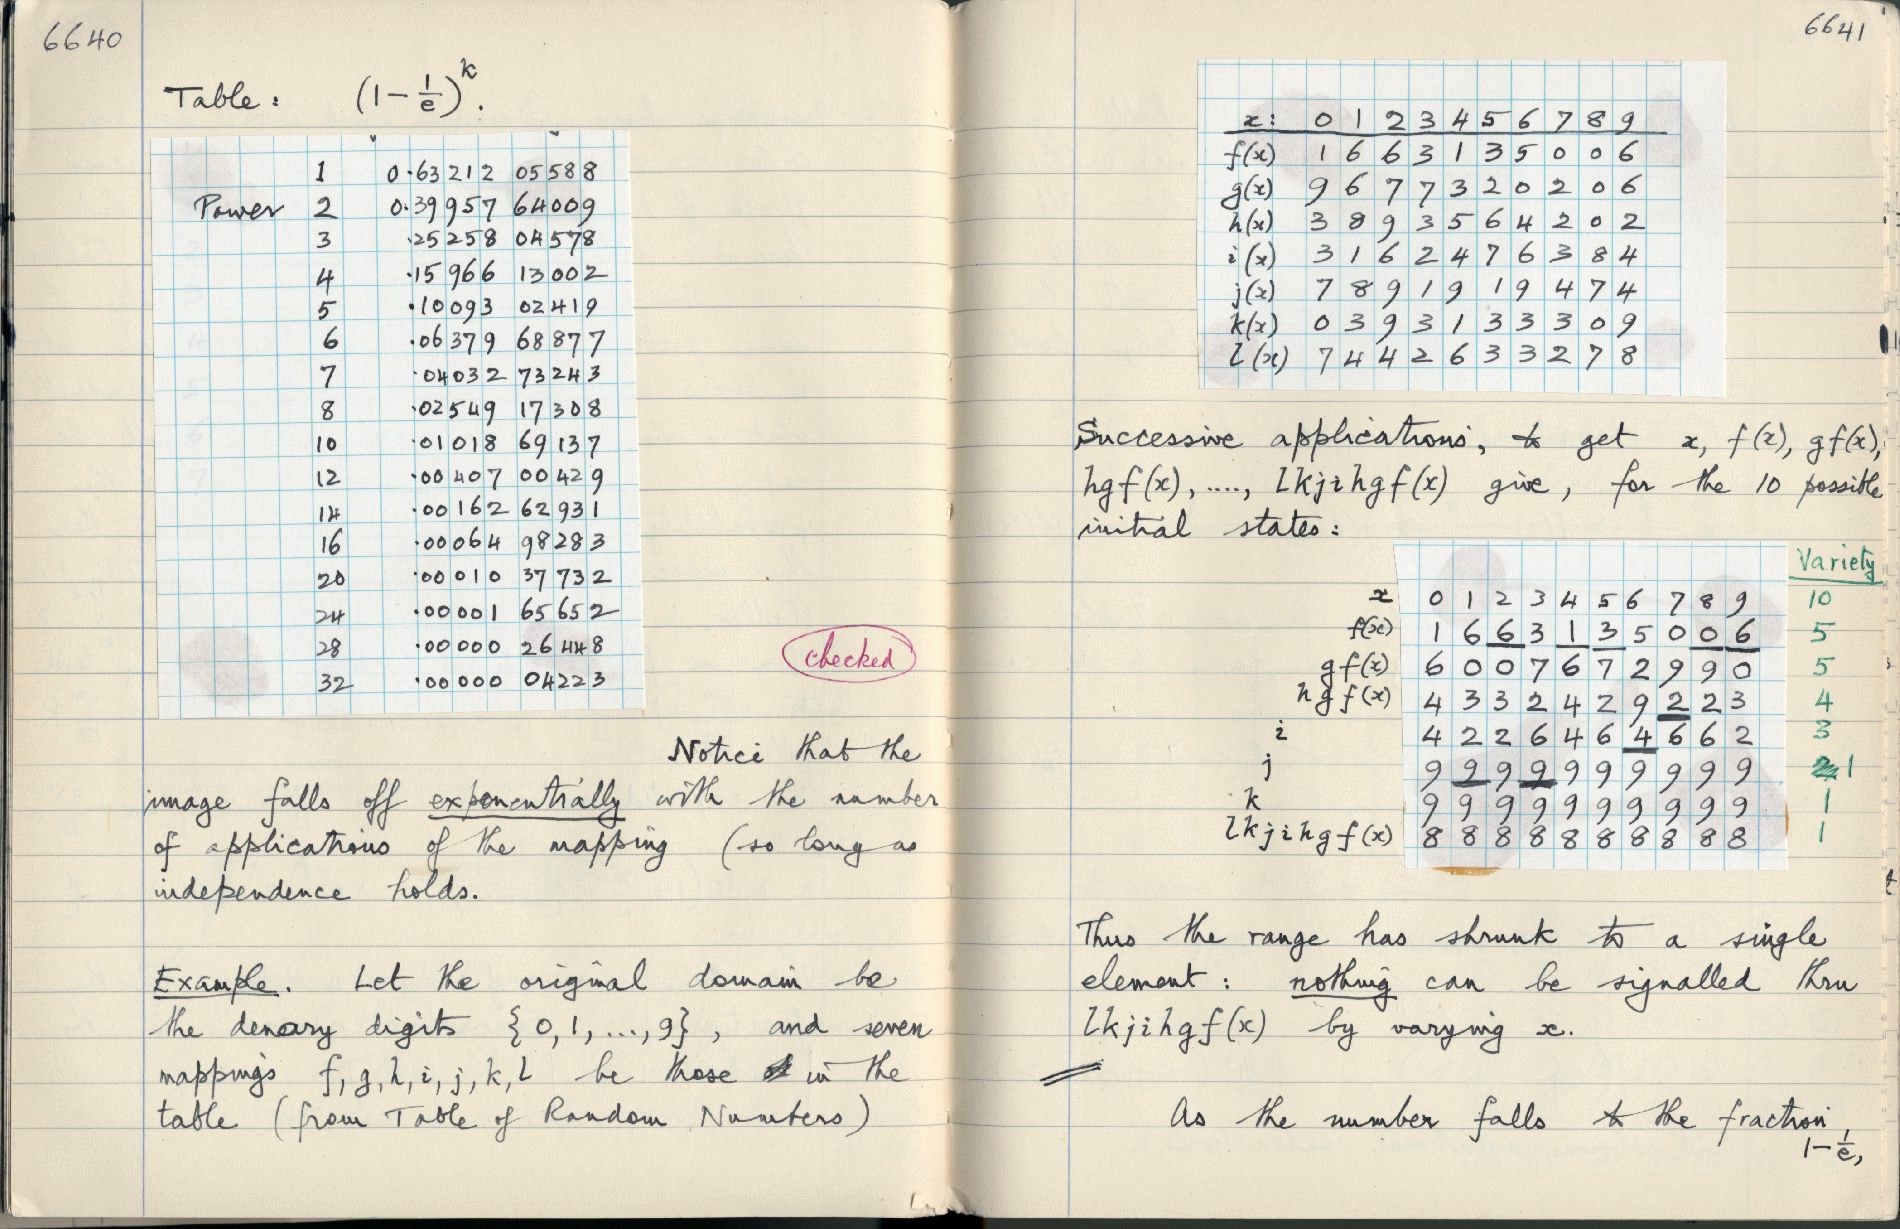 6640
Table: (1 - 1/e)^k.
1 0.63212 05588
Power 2 0.39957 64009
3 .25258 04578
4 .15966 13002
5 .10093 02419
6 .06379 68877
7 .04032 73243
8 .02549 17308
10 .01018 69137
12 .00407 00429
14 .00162 62931
16 .00064 98283
20 .00010 37732
24 .00001 65652
28 .00000 26448
32 .00000 04223
checked
Notice that the
image falls off exponentially with the number
of applications of the mapping (so long as
independence holds.
Example. Let the original domain be
the denary digits {0,1,...,9}, and seven
mappings f,g,h,i,j,k,l be those in the
table (from Table of Random Numbers)
6641
x: 0 1 2 3 4 5 6 7 8 9
f(x) 1 6 6 3 1 3 5 0 0 6
g(x) 9 6 7 7 3 2 0 2 0 6
h(x) 3 8 9 3 5 6 4 2 0 2
i(x) 3 1 6 2 4 7 6 3 8 4
j(x) 7 8 9 1 9 1 9 4 7 4
k(x) 0 3 9 3 1 3 3 3 0 9
l(x) 7 4 4 2 6 3 3 2 7 8
Successive applications, to get x, f(x), gf(x),
hgf(x), ...., lkjihgf(x) give, for the 10 possible
initial states:
Variety
x 0 1 2 3 4 5 6 7 8 9 10
f(x) 1 6 6 3 1 3 5 0 0 6 5
gf(x) 6 0 0 7 6 7 2 9 9 0 5
hgf(x) 4 3 3 2 4 2 9 2 2 3 4
i 4 2 2 6 4 6 4 6 6 2 3
j 9 9 9 9 9 9 9 9 9 9 1
k 9 9 9 9 9 9 9 9 9 9 1
lkjihgf(x) 8 8 8 8 8 8 8 8 8 8 1
Thus the range has shrunk to a single
element: nothing can be signalled thru
lkjihgf(x) by varying x.
As the number falls to the fraction
1 - 1/e,